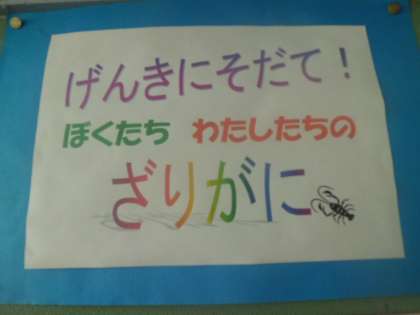 げんきにそだて！
ぼくたち わたしたちの
ざりがに